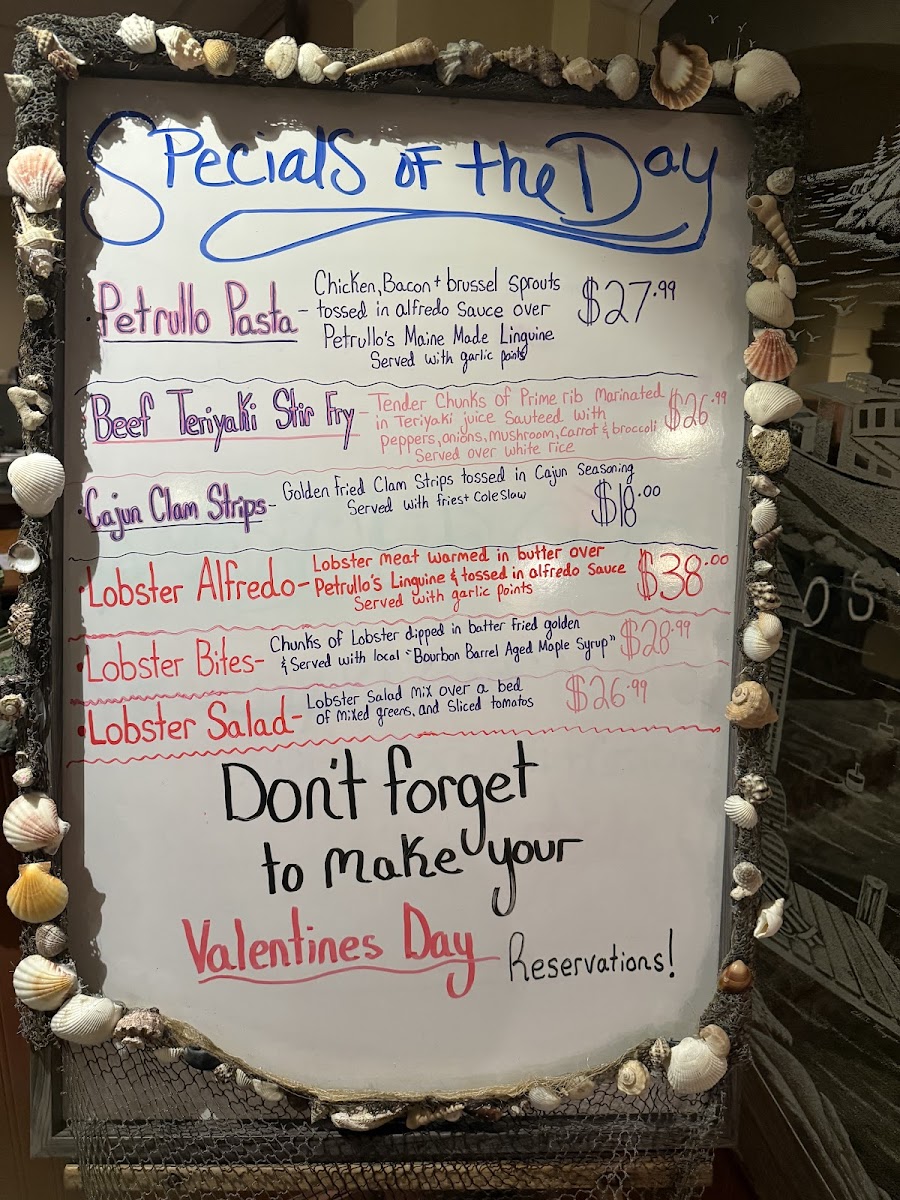 Specials of the Day
Petrullo Pasta - Chicken, Bacon + brussel sprouts $27.99
tossed in alfredo sauce over
Petrullo's Maine Made Linguine
Served with garlic points
Beef Teriyaki Stir Fry - Tender Chunks of Prime rib Marinated $26.99
in Teriyaki juice Sauteed with
peppers, onions, mushroom, Carrot & broccoli
Served over white rice
Cajun Clam Strips - Golden fried Clam Strips tossed in Cajun Seasoning $18.00
Served with friest Cole Slaw
Lobster Alfredo - Lobster meat warmed in butter over $38.00
Petrullo's Linguine & tossed in alfredo sauce
Served with garlic points
Lobster Bites - Chunks of Lobster dipped in batter fried golden $28.99
& Served with local "Bourbon Barrel Aged Maple Syrup"
Lobster Salad - Lobster Salad Mix over a bed $26.99
of mixed greens, and Sliced tomatos
Don't forget
to make your
Valentines Day Reservations!